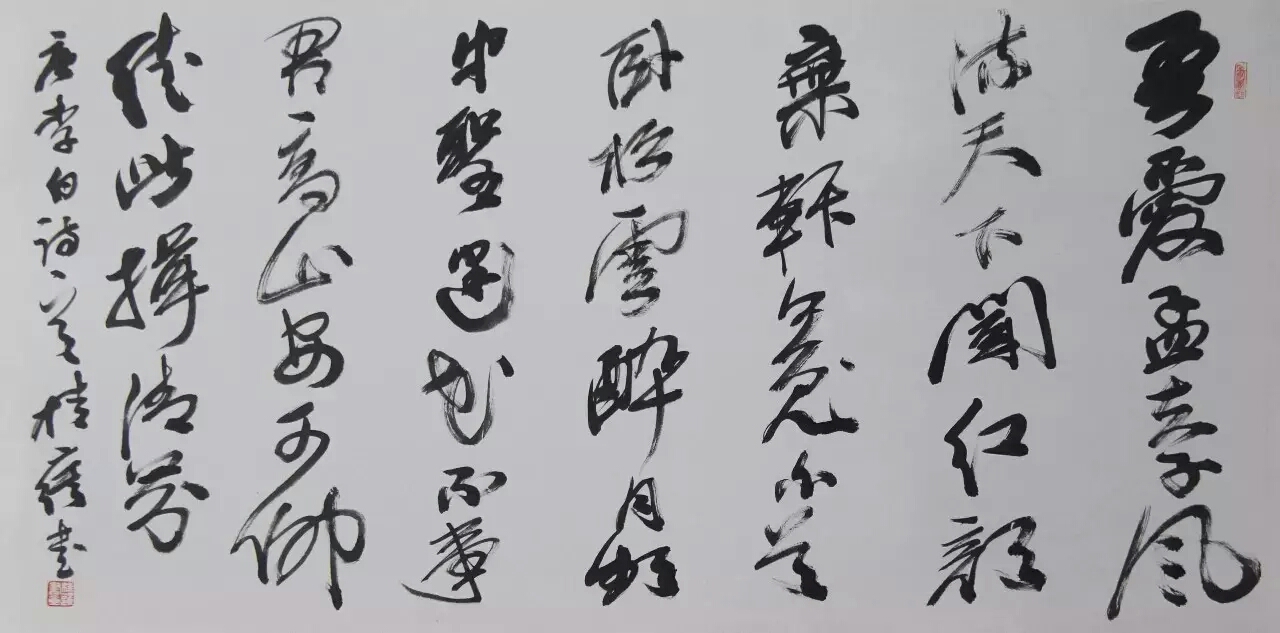 吾愛孟夫子風
流天下聞紅顏
棄軒冕白首
臥松雲醉月頻
中聖迷花不事
君高山安可仰
徒此揖清芬
唐李白詩一首桂書